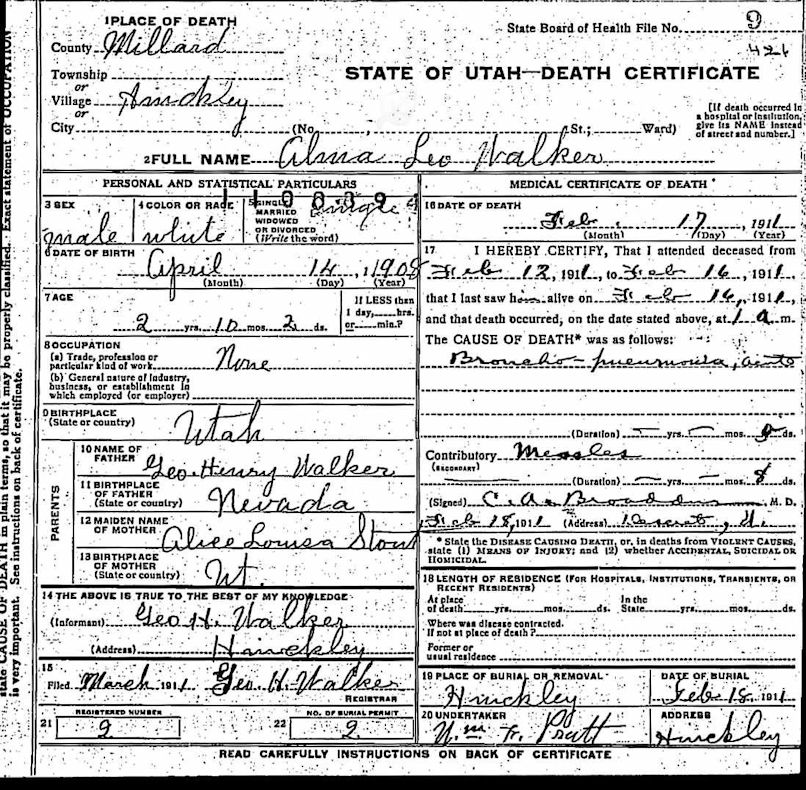 1 PLACE OF DEATH
State Board of Health File No. 9
421
County Millard
STATE OF UTAH—DEATH CERTIFICATE
Township
or
Village Hinckley
or
City (No. , St.; Ward)
[If death occurred in
a hospital or institution,
give its NAME instead
of street and number.]
2 FULL NAME Alma Leo Walker
PERSONAL AND STATISTICAL PARTICULARS
3 SEX
male
4 COLOR OR RACE
white
5 SINGLE
MARRIED
WIDOWED
OR DIVORCED
(Write the word)
Single
6 DATE OF BIRTH
April 14, 1908
(Month) (Day) (Year)
7 AGE
2 yrs. 10 mos. 2 ds.
If LESS than
1 day, hrs.
or min.?
8 OCCUPATION
(a) Trade, profession or
particular kind of work None
(b) General nature of industry,
business, or establishment in
which employed (or employer)
9 BIRTHPLACE
(State or country)
Utah
PARENTS
10 NAME OF
FATHER
Geo. Henry Walker
11 BIRTHPLACE
OF FATHER
(State or country)
Nevada
12 MAIDEN NAME
OF MOTHER
Alice Louisa Stout
13 BIRTHPLACE
OF MOTHER
(State or country)
Ut.
14 THE ABOVE IS TRUE TO THE BEST OF MY KNOWLEDGE
(Informant) Geo H. Walker
(Address) Hinckley
15
Filed March 1911 Geo. H. Walker
REGISTRAR
21
REGISTERED NUMBER
9
22
NO. OF BURIAL PERMIT
2
MEDICAL CERTIFICATE OF DEATH
16 DATE OF DEATH
Feb. 17, 1911
(Month) (Day) (Year)
17. I HEREBY CERTIFY, That I attended deceased from
Feb 12, 1911, to Feb 16, 1911,
that I last saw him alive on Feb 16, 1911,
and that death occurred, on the date stated above, at 1 a m.
The CAUSE OF DEATH* was as follows:
Broncho-pneumonia, acute
(Duration) — yrs. — mos. ds.
Contributory Measles
(SECONDARY)
(Duration) — yrs. — mos. 8 ds.
(Signed) C. A. Broaddus M. D.
Feb 18, 1911 (Address) Deseret, Ut.
* State the DISEASE CAUSING DEATH, or, in deaths from VIOLENT CAUSES,
state (1) MEANS OF INJURY; and (2) whether ACCIDENTAL, SUICIDAL OR
HOMICIDAL.
18 LENGTH OF RESIDENCE (FOR HOSPITALS, INSTITUTIONS, TRANSIENTS, OR
RECENT RESIDENTS)
At place
of death yrs. mos. ds.
In the
State yrs. mos. ds.
Where was disease contracted.
If not at place of death?
Former or
usual residence
19 PLACE OF BURIAL OR REMOVAL
Hinckley
DATE OF BURIAL
Feb 18, 1911
20 UNDERTAKER
Wm. F. Pratt
ADDRESS
Hinckley
READ CAREFULLY INSTRUCTIONS ON BACK OF CERTIFICATE
state CAUSE OF DEATH in plain terms, so that it may be properly classified. Exact statement of OCCUPATION
is very important. See instructions on back of certificate.